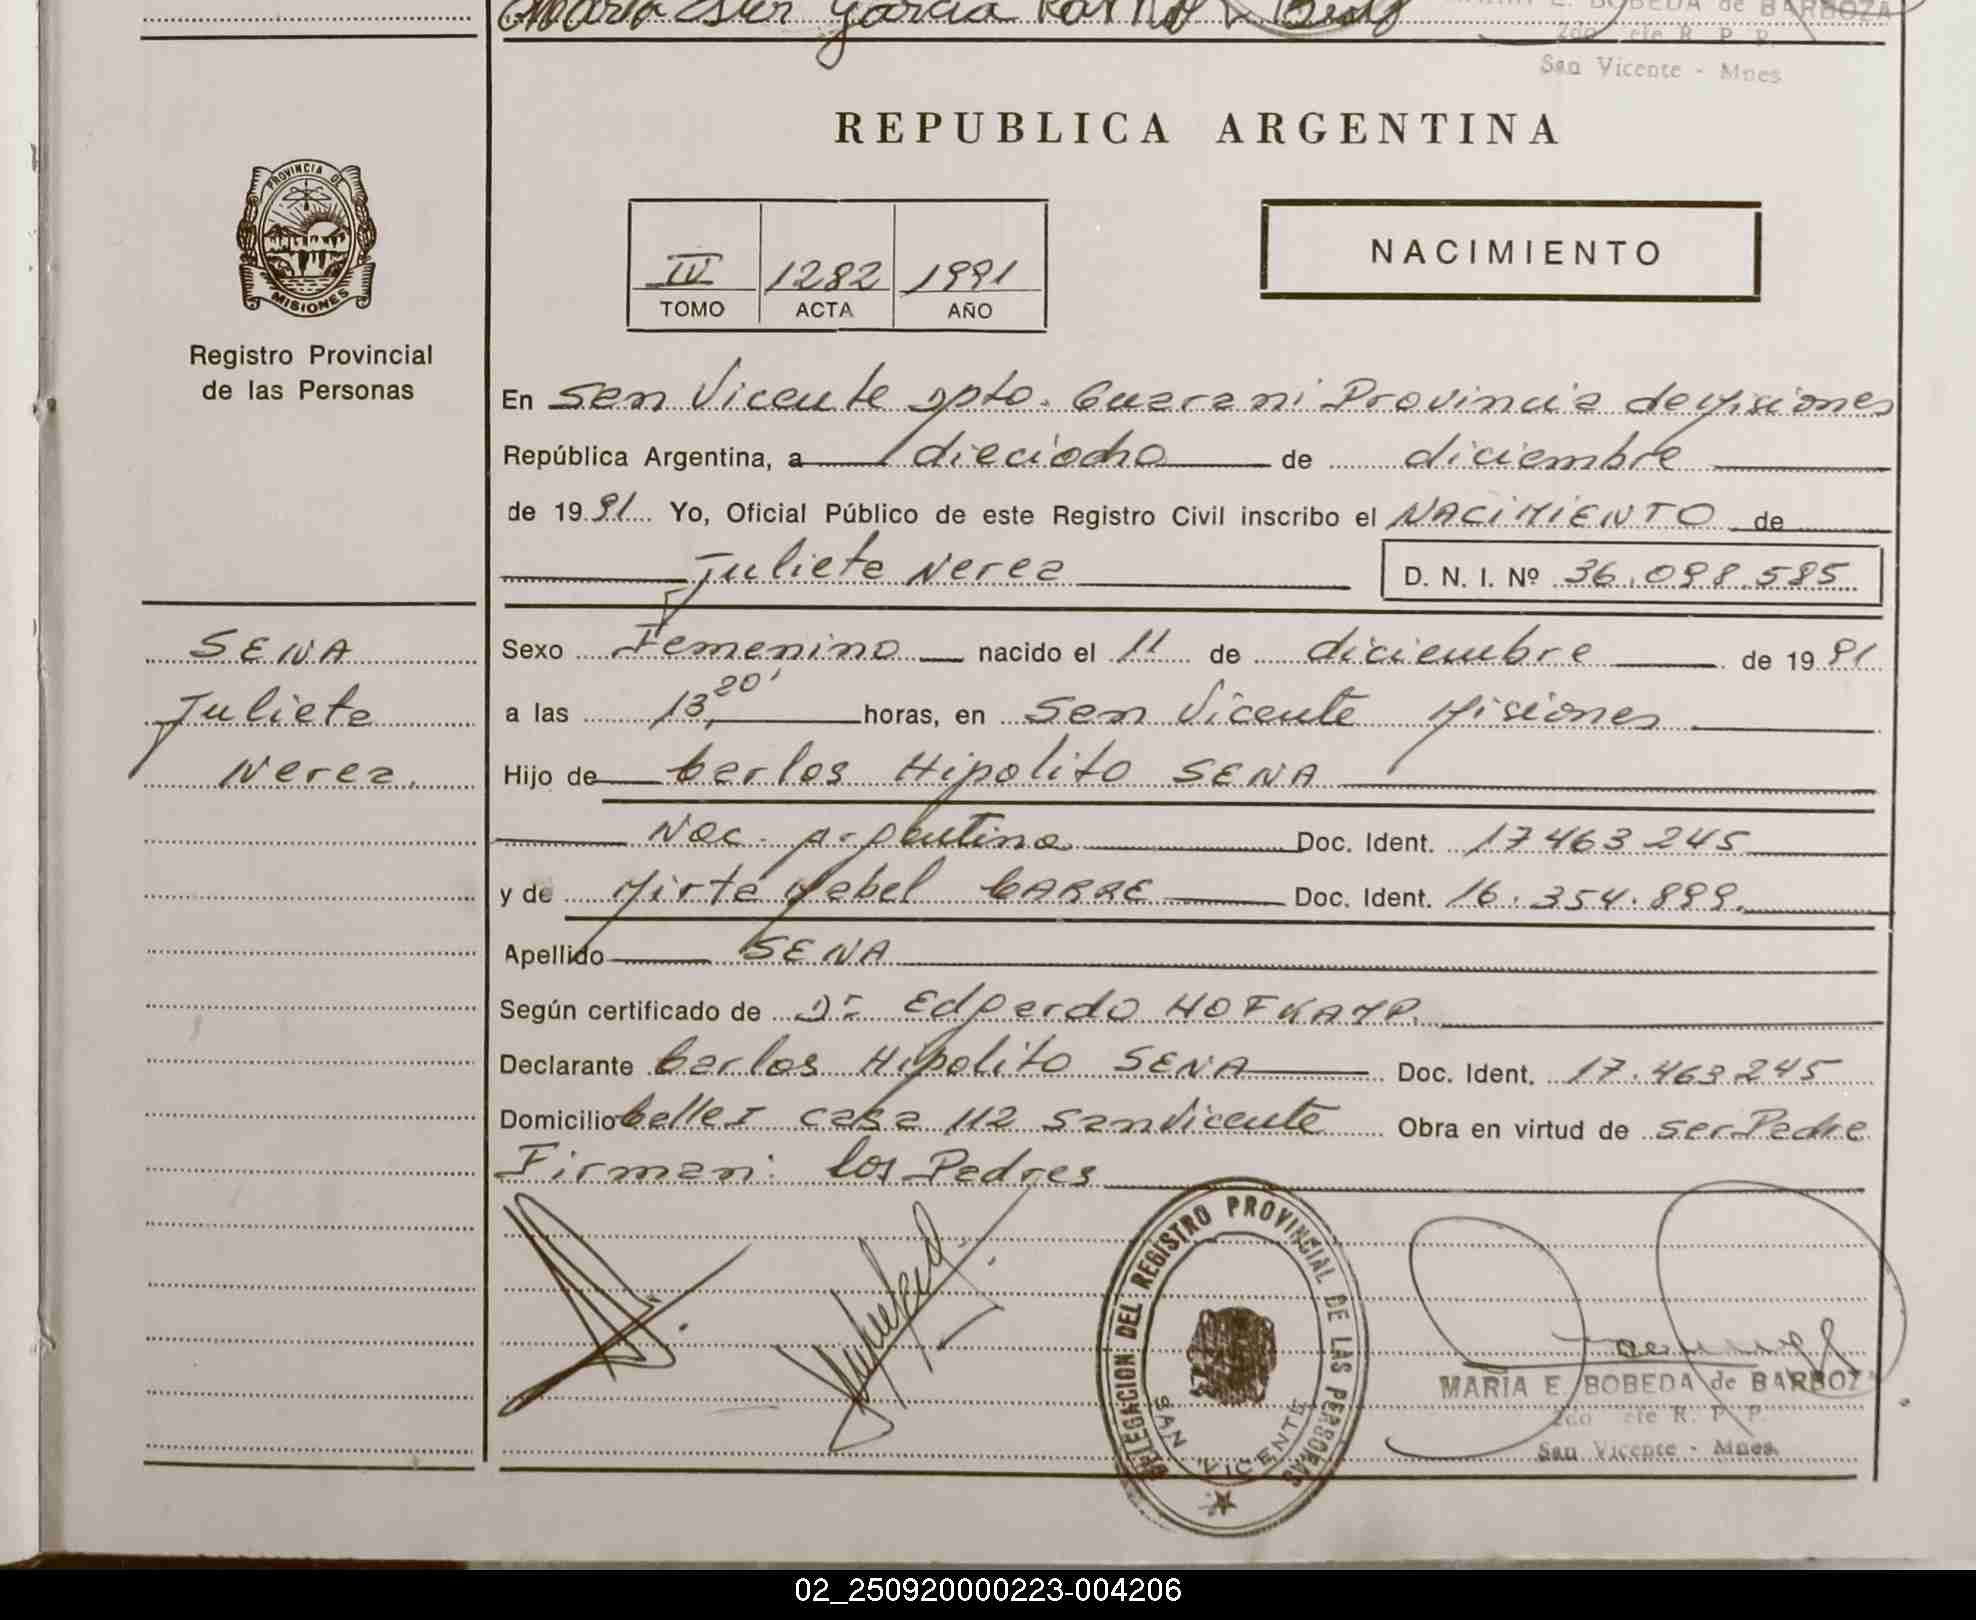 MARIA E. BOBEDA de BARBOZA
2do R. P. P.
San Vicente - Mnes
REPUBLICA ARGENTINA
PROVINCIA DE
MISIONES
Registro Provincial
de las Personas
1282 1991
TOMO ACTA AÑO
NACIMIENTO
En San Vicente Dpto. Guarani Provincia de Misiones
República Argentina, a dieciocho de diciembre
de 1991 Yo, Oficial Público de este Registro Civil inscribo el NACIMIENTO de
Julieta Nerea D. N. I. Nº 36.098.585
SENA
Julieta
Nerea.
Sexo Femenino nacido el 11 de diciembre de 1991
a las 13,20' horas, en San Vicente Misiones
Hijo de Carlos Hipolito SENA
Nac. Argentina Doc. Ident. 17463245
y de Mirta Mabel CARRE Doc. Ident. 16.354.899.
Apellido SENA
Según certificado de Dr Edgardo HOFKAMP.
Declarante Carlos Hipolito SENA Doc. Ident. 17.463245
Domicilio Calle I casa 112 San Vicente Obra en virtud de ser Padre
Firman: los Padres
DELEGACION DEL REGISTRO PROVINCIAL DE LAS PERSONAS
SAN VICENTE
MARIA E. BOBEDA de BARBOZA
2do R. P. P.
San Vicente - Mnes.
02_250920000223-004206